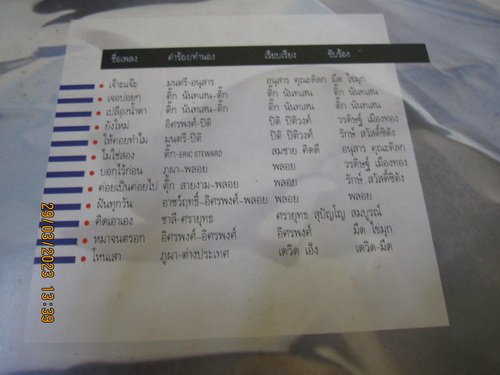 ชื่อเพลง คำร้อง/ทำนอง เรียบเรียง ขับร้อง
เจ๊าะแจ๊ะ มนตรี-อนุสาร อนุสาร คุณะดิลก มืด ไข่มุก
เจอบ่อยๆ ติ๊ก นันทเสน-ติ๊ก ติ๊ก นันทเสน ติ๊ก นันทเสน
เปลืองน้ำตา ติ๊ก นันทเสน-ติ๊ก ติ๊ก นันทเสน ติ๊ก นันทเสน
ยังไหม่ อิศรพงศ์-ปิติ ปิติ ปิติวงศ์ วรดิษฐ์ เมืองทอง
ให้คอยทำไม มนตรี-ปิติ ปิติ ปิติวงศ์ รักษ์ สวัสดิ์ชิตัง
ไม่ใช่สอง ติ๊ก-ERIC STEWARD สมชาย คิดดี อนุสาร คุณะดิลก
บอกไว้ก่อน ภูผา-พลอย พลอย วรดิษฐ์ เมืองทอง
ค่อยเป็นค่อยไป ตุ๊ก สายงาม-พลอย พลอย รักษ์ สวัสดิ์ชิตัง
ฝันทุกวัน อาชวิฤทธิ์-อิศรพงศ์-พลอย พลอย พลอย
คิดเอาเอง ชาลี-ศรายุทธ ศรายุทธ สุปัญโญ สมบูรณ์
หมาจนตรอก อิศรพงศ์-อิศรพงศ์ อิศรพงศ์ มืด ไข่มุก
โหนเสา ภูผา-ต่างประเทศ เดวิด เอ็ง เดวิด-มืด
29/03/2023 13:39